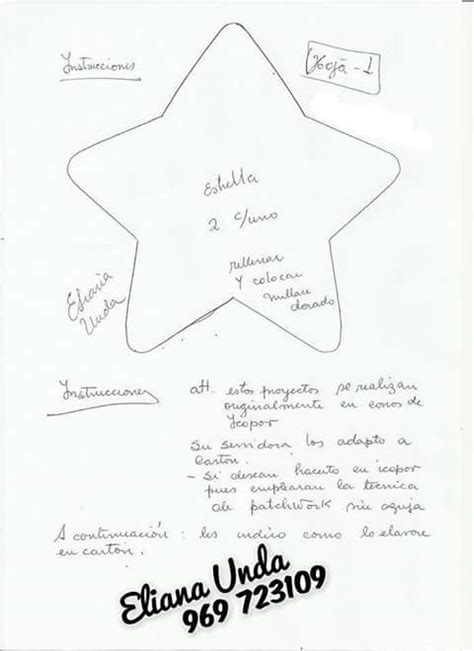 Instrucciones
Hoja - 1
Estrella
2 c/uno
rellenar
y colocar
mullau
dorado
Eliana
Unda
Instrucciones
att. estos proyectos se realizan
originalmente en conos de
Icopor
Su servidora los adapto a
Carton.
- Si desean hacerlo en icopor
pues emplearan la tecnica
de patchwork sin aguja
A continuación : les indico como lo elavore
en carton.
Eliana Unda
969 723109